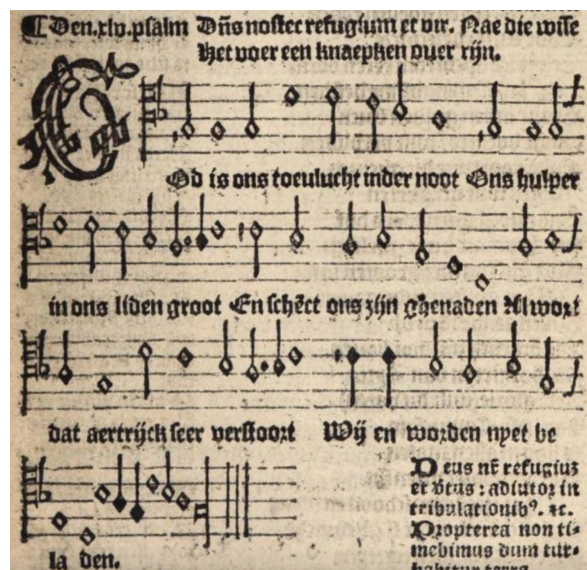 Den.xlv.psalm Dñs noster refugium et vir. Nae die wise
Het voer een knaepken ouer rijn.
God is ons toeulucht inder noot Ons hulper
in ons liden groot En schēct ons zijn ghenaden Al wort
dat aertrijck seer verstoort Wij en worden nyet be
la den.
Deus nr̄ refugiuȝ
et v̄tus: adiutor in
tribulationib⁹. ꝛc.
Propterea non ti-
mebimus dum tur-
babitur terra